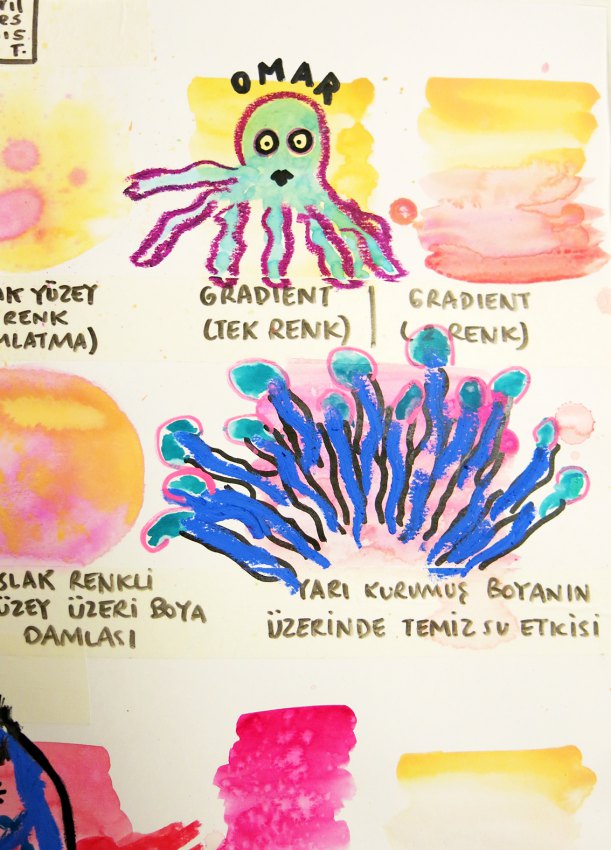 T.
OMAR
YÜZEY
RENK
GRADIENT
(TEK RENK)
GRADIENT
RENK)
RENKLİ
ÜZERİ BOYA
DAMLASI
YARI KURUMUŞ BOYANIN
ÜZERİNDE TEMİZ SU ETKİSİ